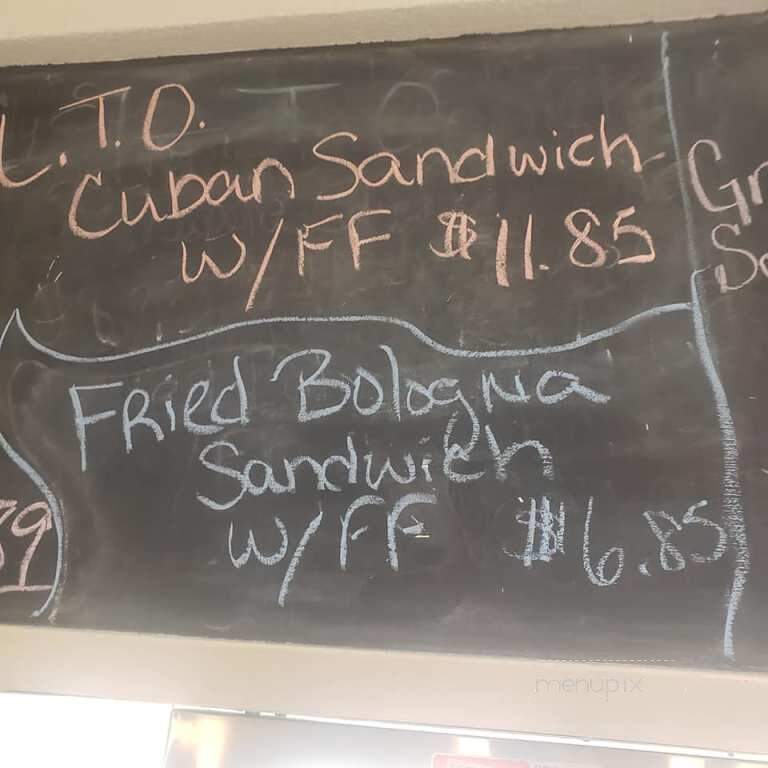 L.T.O.
Cuban Sandwich
W/FF $11.85
Fried Bologna
Sandwich
W/FF $6.85
Gr
So
39
menupix